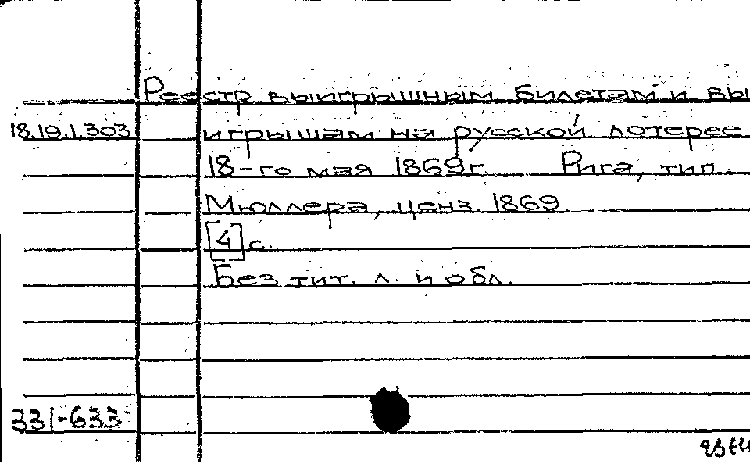 Реестр выигрышным билетам и вы
18.19.1.303 игрышам на русской лотерее
18-го мая 1869г. Рига, тип.
Мюллера, ценз. 1869.
[4] с.
Без тит. л. и обл.
331-633